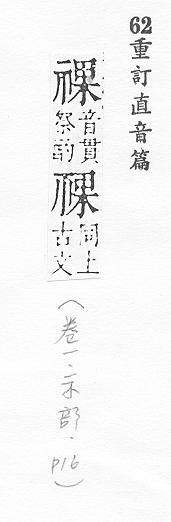 62重訂直音篇
祼音貫祭酌祼同上古文
(卷一.示部.p16)